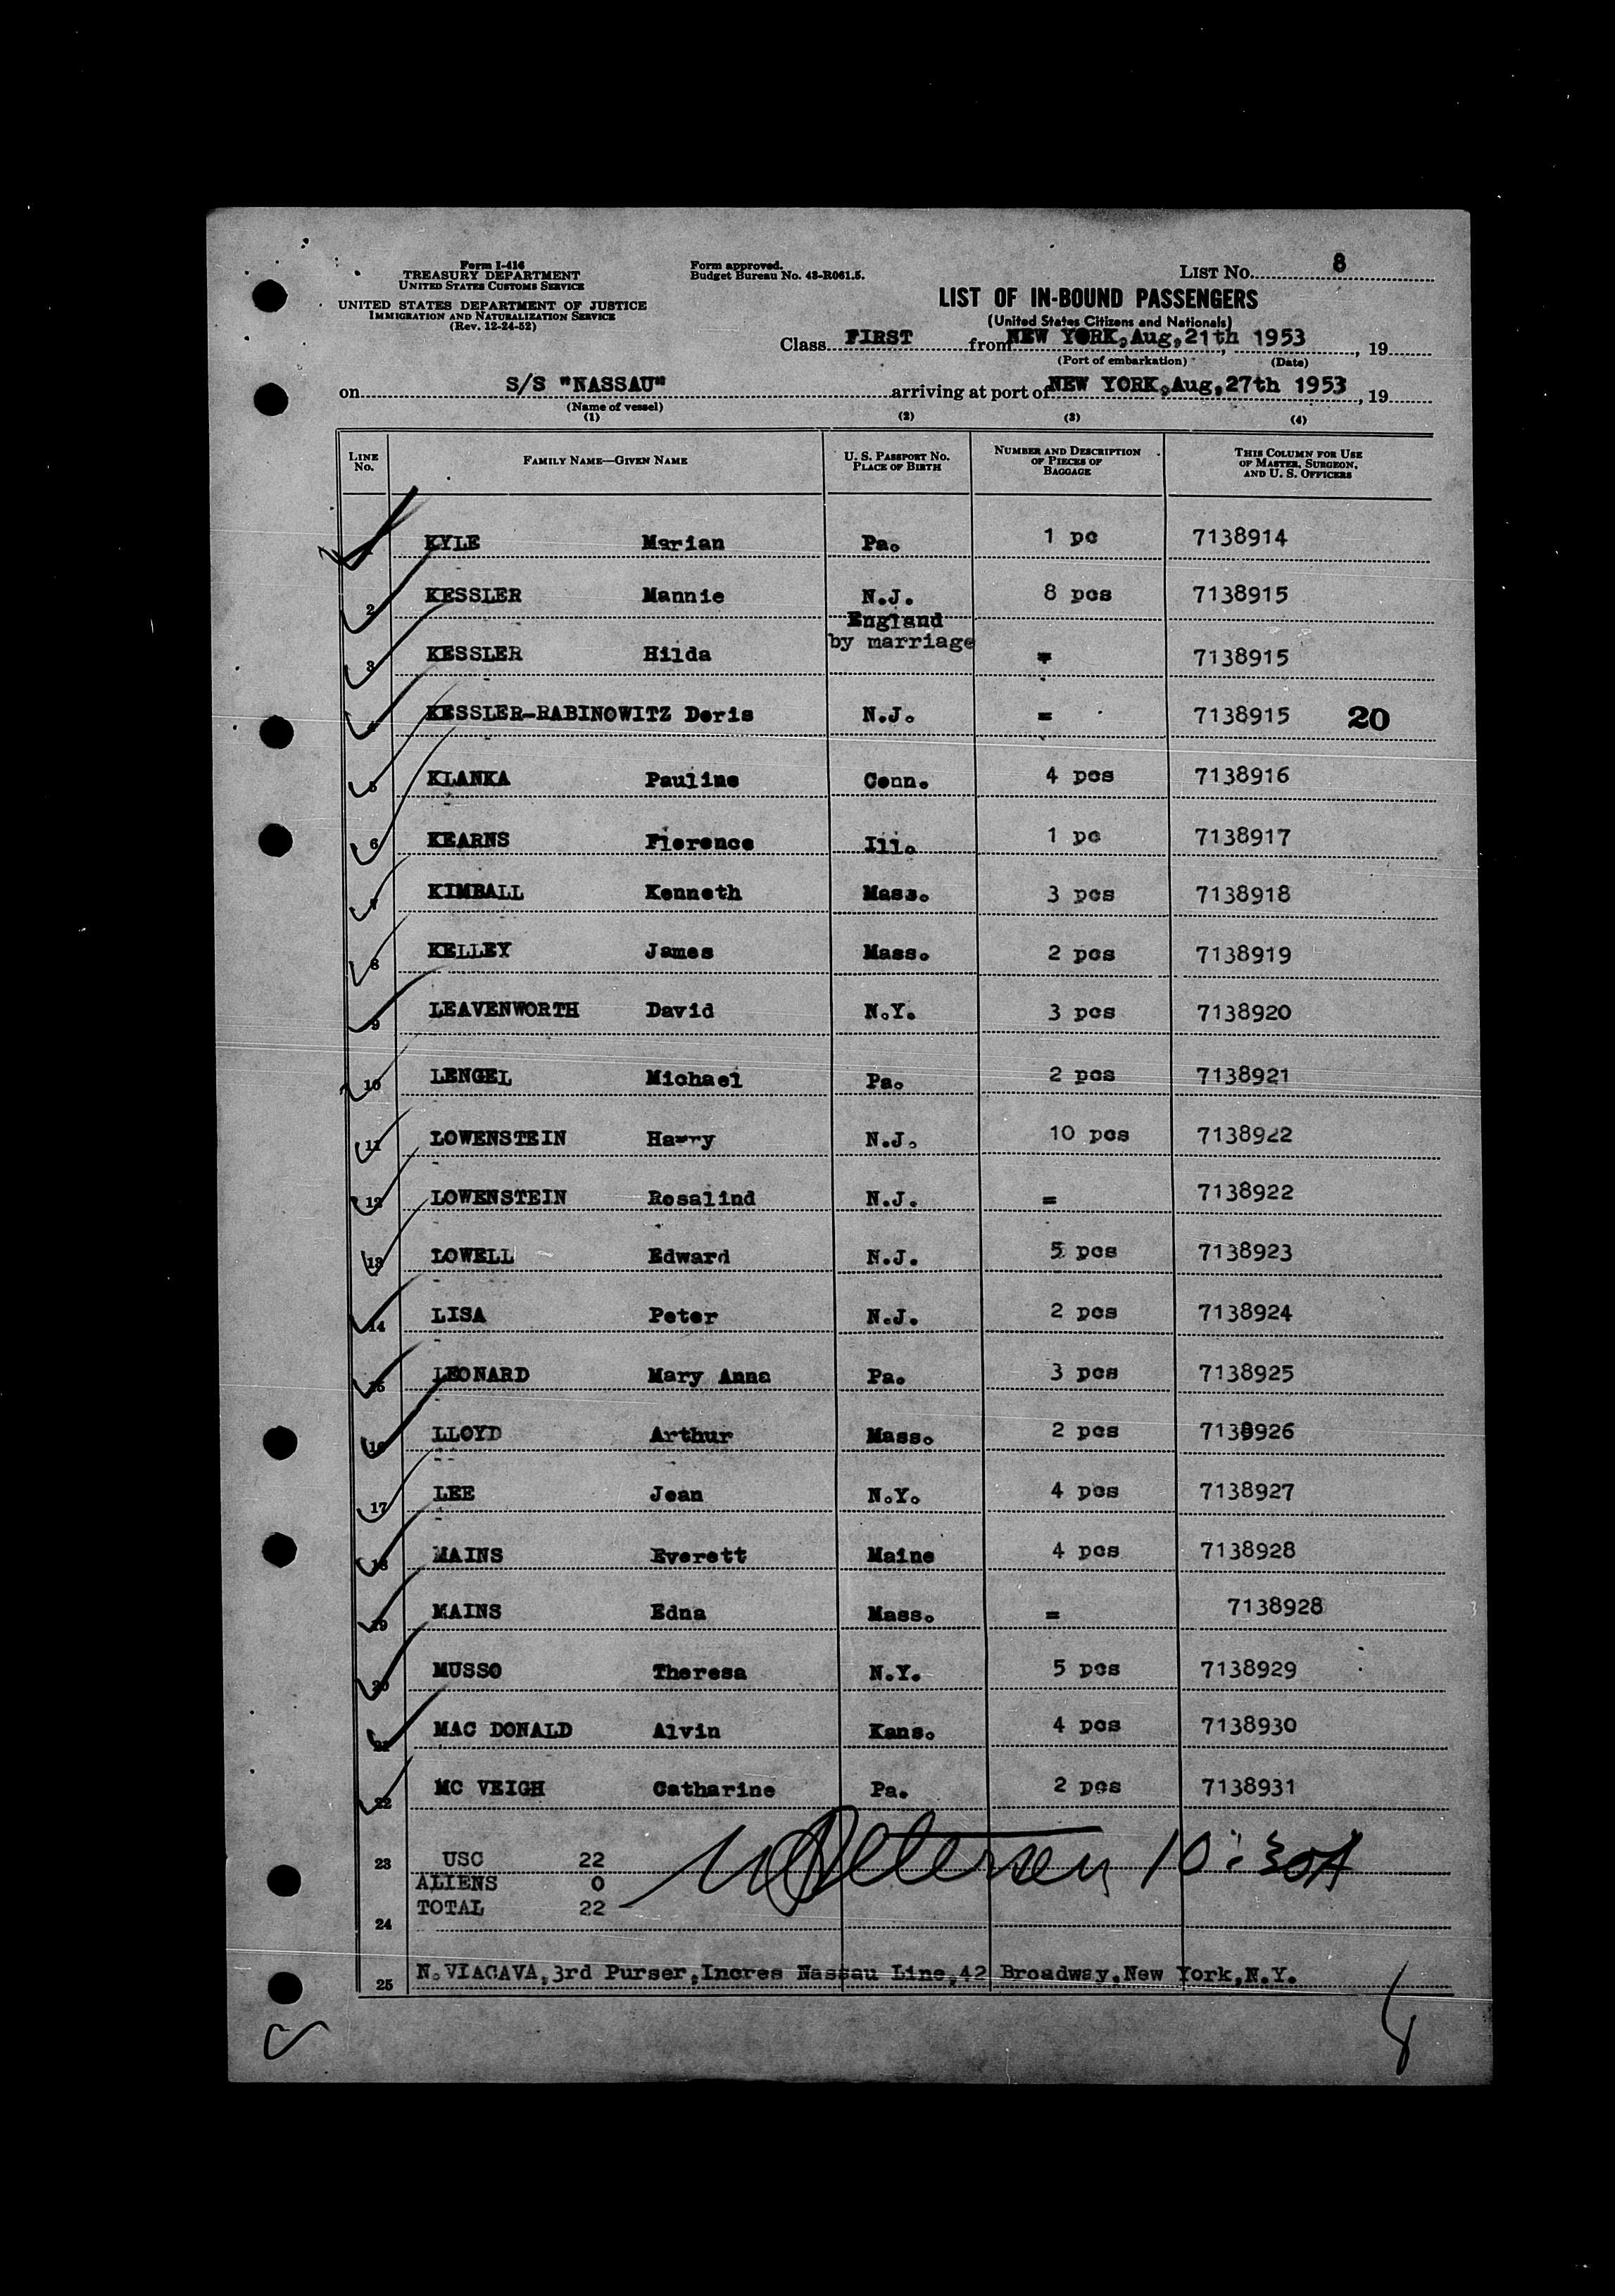 Form I-416
TREASURY DEPARTMENT
UNITED STATES CUSTOMS SERVICE
UNITED STATES DEPARTMENT OF JUSTICE
IMMIGRATION AND NATURALIZATION SERVICE
(Rev. 12-24-52)
Form approved.
Budget Bureau No. 43-R061.5.
LIST NO. 8
LIST OF IN-BOUND PASSENGERS
(United States Citizens and Nationals)
Class FIRST from NEW YORK, Aug, 21th 1953, 19
(Port of embarkation) (Date)
on S/S "NASSAU" arriving at port of NEW YORK, Aug, 27th 1953, 19
(Name of vessel)
(1) (2) (3) (4)
LINE NO. FAMILY NAME—GIVEN NAME U. S. PASSPORT NO. PLACE OF BIRTH NUMBER AND DESCRIPTION OF PIECES OF BAGGAGE THIS COLUMN FOR USE OF MASTER, SURGEON, AND U. S. OFFICERS
1 KYLE Marian Pa. 1 pc 7138914
2 KESSLER Mannie N.J. 8 pcs 7138915
England
by marriage
3 KESSLER Hilda = 7138915
4 KESSLER-RABINOWITZ Doris N.J. = 7138915 20
5 KLANKA Pauline Conn. 4 pcs 7138916
6 KEARNS Florence Ill. 1 pc 7138917
7 KIMBALL Kenneth Mass. 3 pcs 7138918
8 KELLEY James Mass. 2 pcs 7138919
9 LEAVENWORTH David N.Y. 3 pcs 7138920
10 LENGEL Michael Pa. 2 pcs 7138921
11 LOWENSTEIN Harry N.J. 10 pcs 7138922
12 LOWENSTEIN Rosalind N.J. = 7138922
13 LOWELL Edward N.J. 5 pcs 7138923
14 LISA Peter N.J. 2 pcs 7138924
15 LEONARD Mary Anna Pa. 3 pcs 7138925
16 LLOYD Arthur Mass. 2 pcs 7138926
17 LEE Jean N.Y. 4 pcs 7138927
18 MAINS Everett Maine 4 pcs 7138928
19 MAINS Edna Mass. = 7138928
20 MUSSO Theresa N.Y. 5 pcs 7138929
21 MAC DONALD Alvin Kans. 4 pcs 7138930
22 MC VEIGH Catharine Pa. 2 pcs 7138931
23 USC 22 Petersen 10:30A
ALIENS 0
TOTAL 22
24
25 N. VIACAVA, 3rd Purser, Incres Nassau Line, 42 Broadway, New York, N.Y.
8